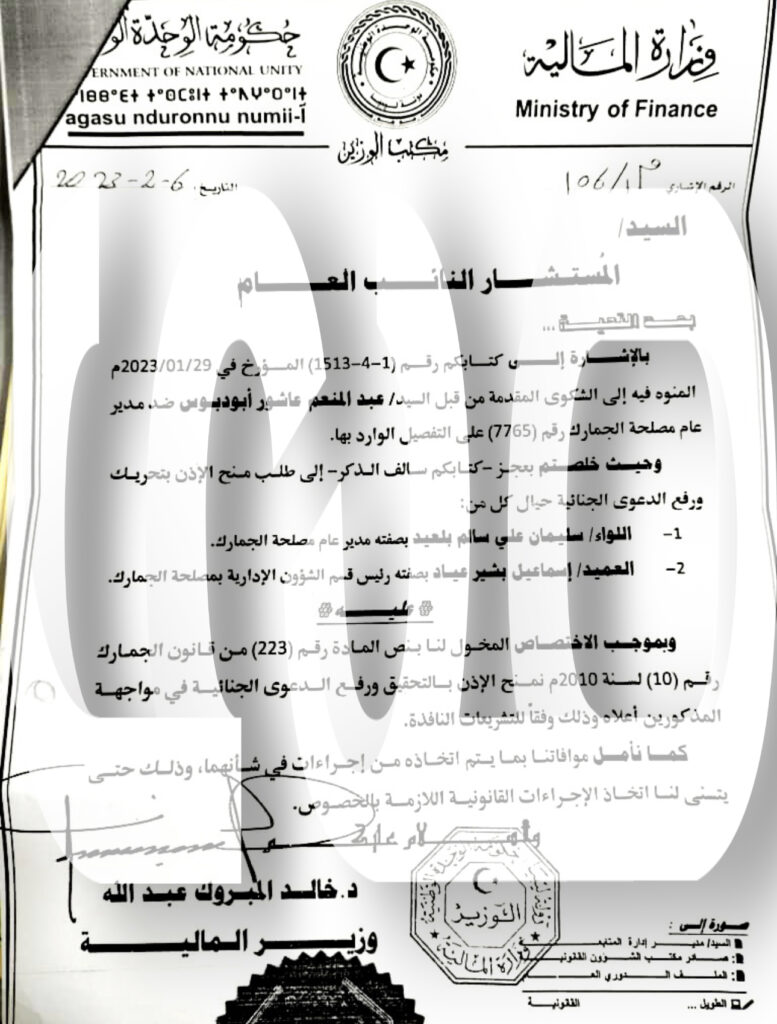 حكومة الوحدة الو
ERNMENT OF NATIONAL UNITY
agasu nduronnu numii-Ī
وزارة المالية
Ministry of Finance
مكتب الوزير
الرقم الإشاري
التاريخ: 2023-2-6
السيد/
المُستشار النائب العام
بعد التحية ...
بالإشارة إلى كتابكم رقم (1-4-1513) المؤرخ في 2023/01/29م
المنوه فيه إلى الشكوى المقدمة من قبل السيد/ عبد المنعم عاشور أبودبوس ضد مدير
عام مصلحة الجمارك رقم (7765) على التفصيل الوارد بها.
وحيث خلصتم بعجز –كتابكم سالف الذكر– إلى طلب منح الإذن بتحريك
ورفع الدعوى الجنائية حيال كل من:
1- اللواء/ سليمان علي سالم بلعيد بصفته مدير عام مصلحة الجمارك.
2- العميد/ إسماعيل بشير عياد بصفته رئيس قسم الشؤون الإدارية بمصلحة الجمارك.
# عليه #
وبموجب الاختصاص المخول لنا بنص المادة رقم (223) من قانون الجمارك
رقم (10) لسنة 2010م نمنح الإذن بالتحقيق ورفع الدعوى الجنائية في مواجهة
المذكورين أعلاه وذلك وفقاً للتشريعات النافدة.
كما نأمل موافاتنا بما يتم اتخاذه من إجراءات في شأنهما، وذلك حتى
يتسنى لنا اتخاذ الإجراءات القانونية اللازمة بالخصوص.
د. خالد المبروك عبد الله
وزير المالية
الوزير
وزارة المالية
صورة إلى :
السيد/ مدير إدارة المتابعة
صادر مكتب الشؤون القانونية
الملف الدوري العام
الطويل ... القانونية